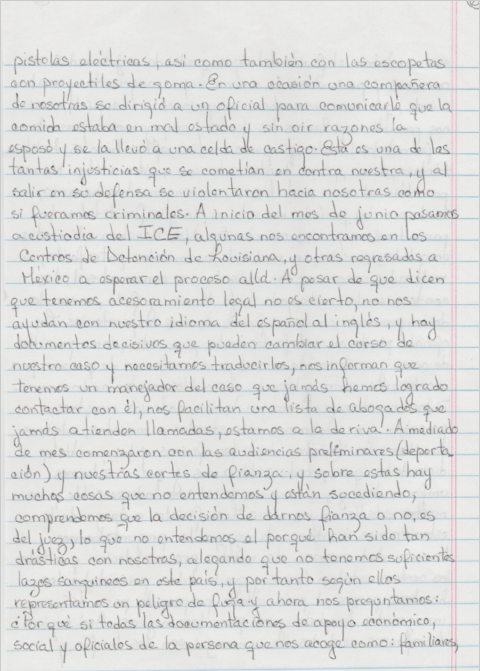 pistolas eléctricas, así como también con las escopetas
con proyectiles de goma. En una ocasión una compañera
de nosotras se dirigió a un oficial para comunicarle que la
comida estaba en mal estado y sin oir razones la
esposó y se la llevó a una celda de castigo. Esta es una de las
tantas injusticias que se cometían en contra nuestra, y al
salir en su defensa se violentaron hacia nosotras como
si fueramos criminales. A inicio del mes de junio pasamos
a custiodia del ICE, algunas nos encontramos en los
Centros de Detención de Louisiana, y otras regresadas a
México a esperar el proceso allá. A pesar de que dicen
que tenemos acesoramiento legal no es cierto, no nos
ayudan con nuestro idioma del español al inglés, y hay
documentos decisivos que pueden cambiar el curso de
nuestro caso y necesitamos traducirlos, nos informan que
tenemos un manejador del caso que jamás hemos logrado
contactar con él, nos facilitan una lista de abogados que
jamás atienden llamadas, estamos a la deriva. A mediado
de mes comenzaron con las audiencias preliminares (deporta
ción) y nuestras cortes de fianza, y sobre estas hay
muchas cosas que no entendemos y están sucediendo,
comprendemos que la decisión de darnos fianza o no, es
del juez, lo que no entendemos el porqué han sido tan
drásticas con nosotras, alegando que no tenemos suficientes
lazos sanguineos en este país, y por tanto según ellos
representamos un peligro de fuga y ahora nos preguntamos:
¿Por qué si todas las documentaciones de apoyo económico,
social y oficiales de la persona que nos acoge como: familiares,